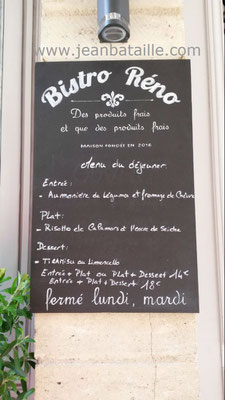 www.jeanbataille.com
Bistro Réno
Des produits frais
et que des produits frais
MAISON FONDÉE EN 2016
Menu du déjeuner
Entrée:
- Aumonière de légumes et fromage de Chèvre
Plat:
- Risotto de Calamars et Pence de Seiche
Dessert:
- Tiramisu au Limoncello
Entrée + Plat ou Plat + Dessert 14€
Entrée + Plat + Dessert 18€
fermé lundi, mardi